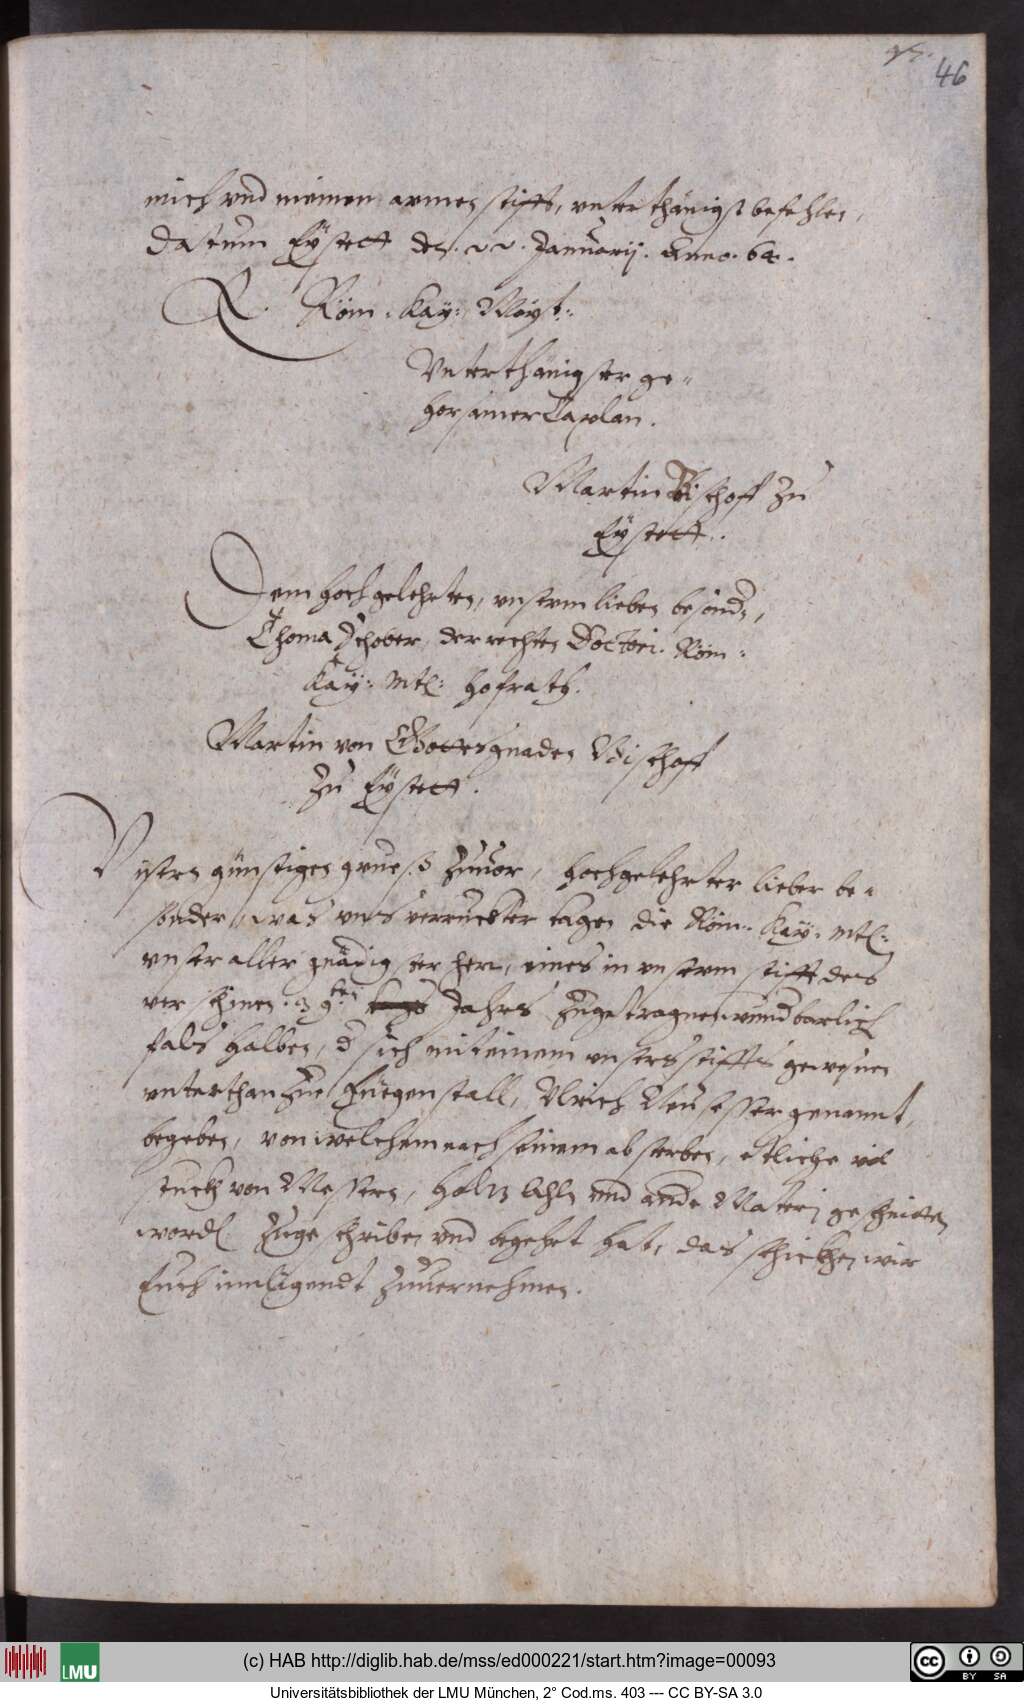 46
mich vnd meinen armen stifft, vnterthänigst befehlen,
Datum Eÿstett den. 22. Januarij. Anno. 64.
E. Röm: Kaÿ: Maÿt:
Vnterthänigster ge=
horsamer Caplan.
Martin Bischoff zu
Eÿstett.
Dem hochgelehrten, vnserm lieben besond:,
Thoma Schober, der rechten Doctori. Röm:
Kaÿ: Mtt: hofrath.
Martin von Gottes gnaden Bischoff
zu Eÿstett.
Vnsern günstigen grues zuuor, hochgelehrter lieber be=
sonder, was vns verruckter tagen die Röm: Kaÿ: Mtt:
vnser aller gnädigster herr, eines in vnserm stifft des
verschinen 39ten Jahrs zugetragnen wunderbarlich
fals halben, d sich mit einem vnsers stiffts gewesnen
vnterthan zue Füegenstall, Vlrich Neusesser genannt,
begeben, von welchem nach seinem absterben, etliche vil
stuckh von Messern, holtz kohln vnd ande Materj geschnitten
word zugeschriben vnd begehrt hat, das schickhen wir
Euch innligendt zuuernehmen.
(c) HAB http://diglib.hab.de/mss/ed000221/start.htm?image=00093
LMU
CC BY SA
Universitätsbibliothek der LMU München, 2° Cod.ms. 403 --- CC BY-SA 3.0